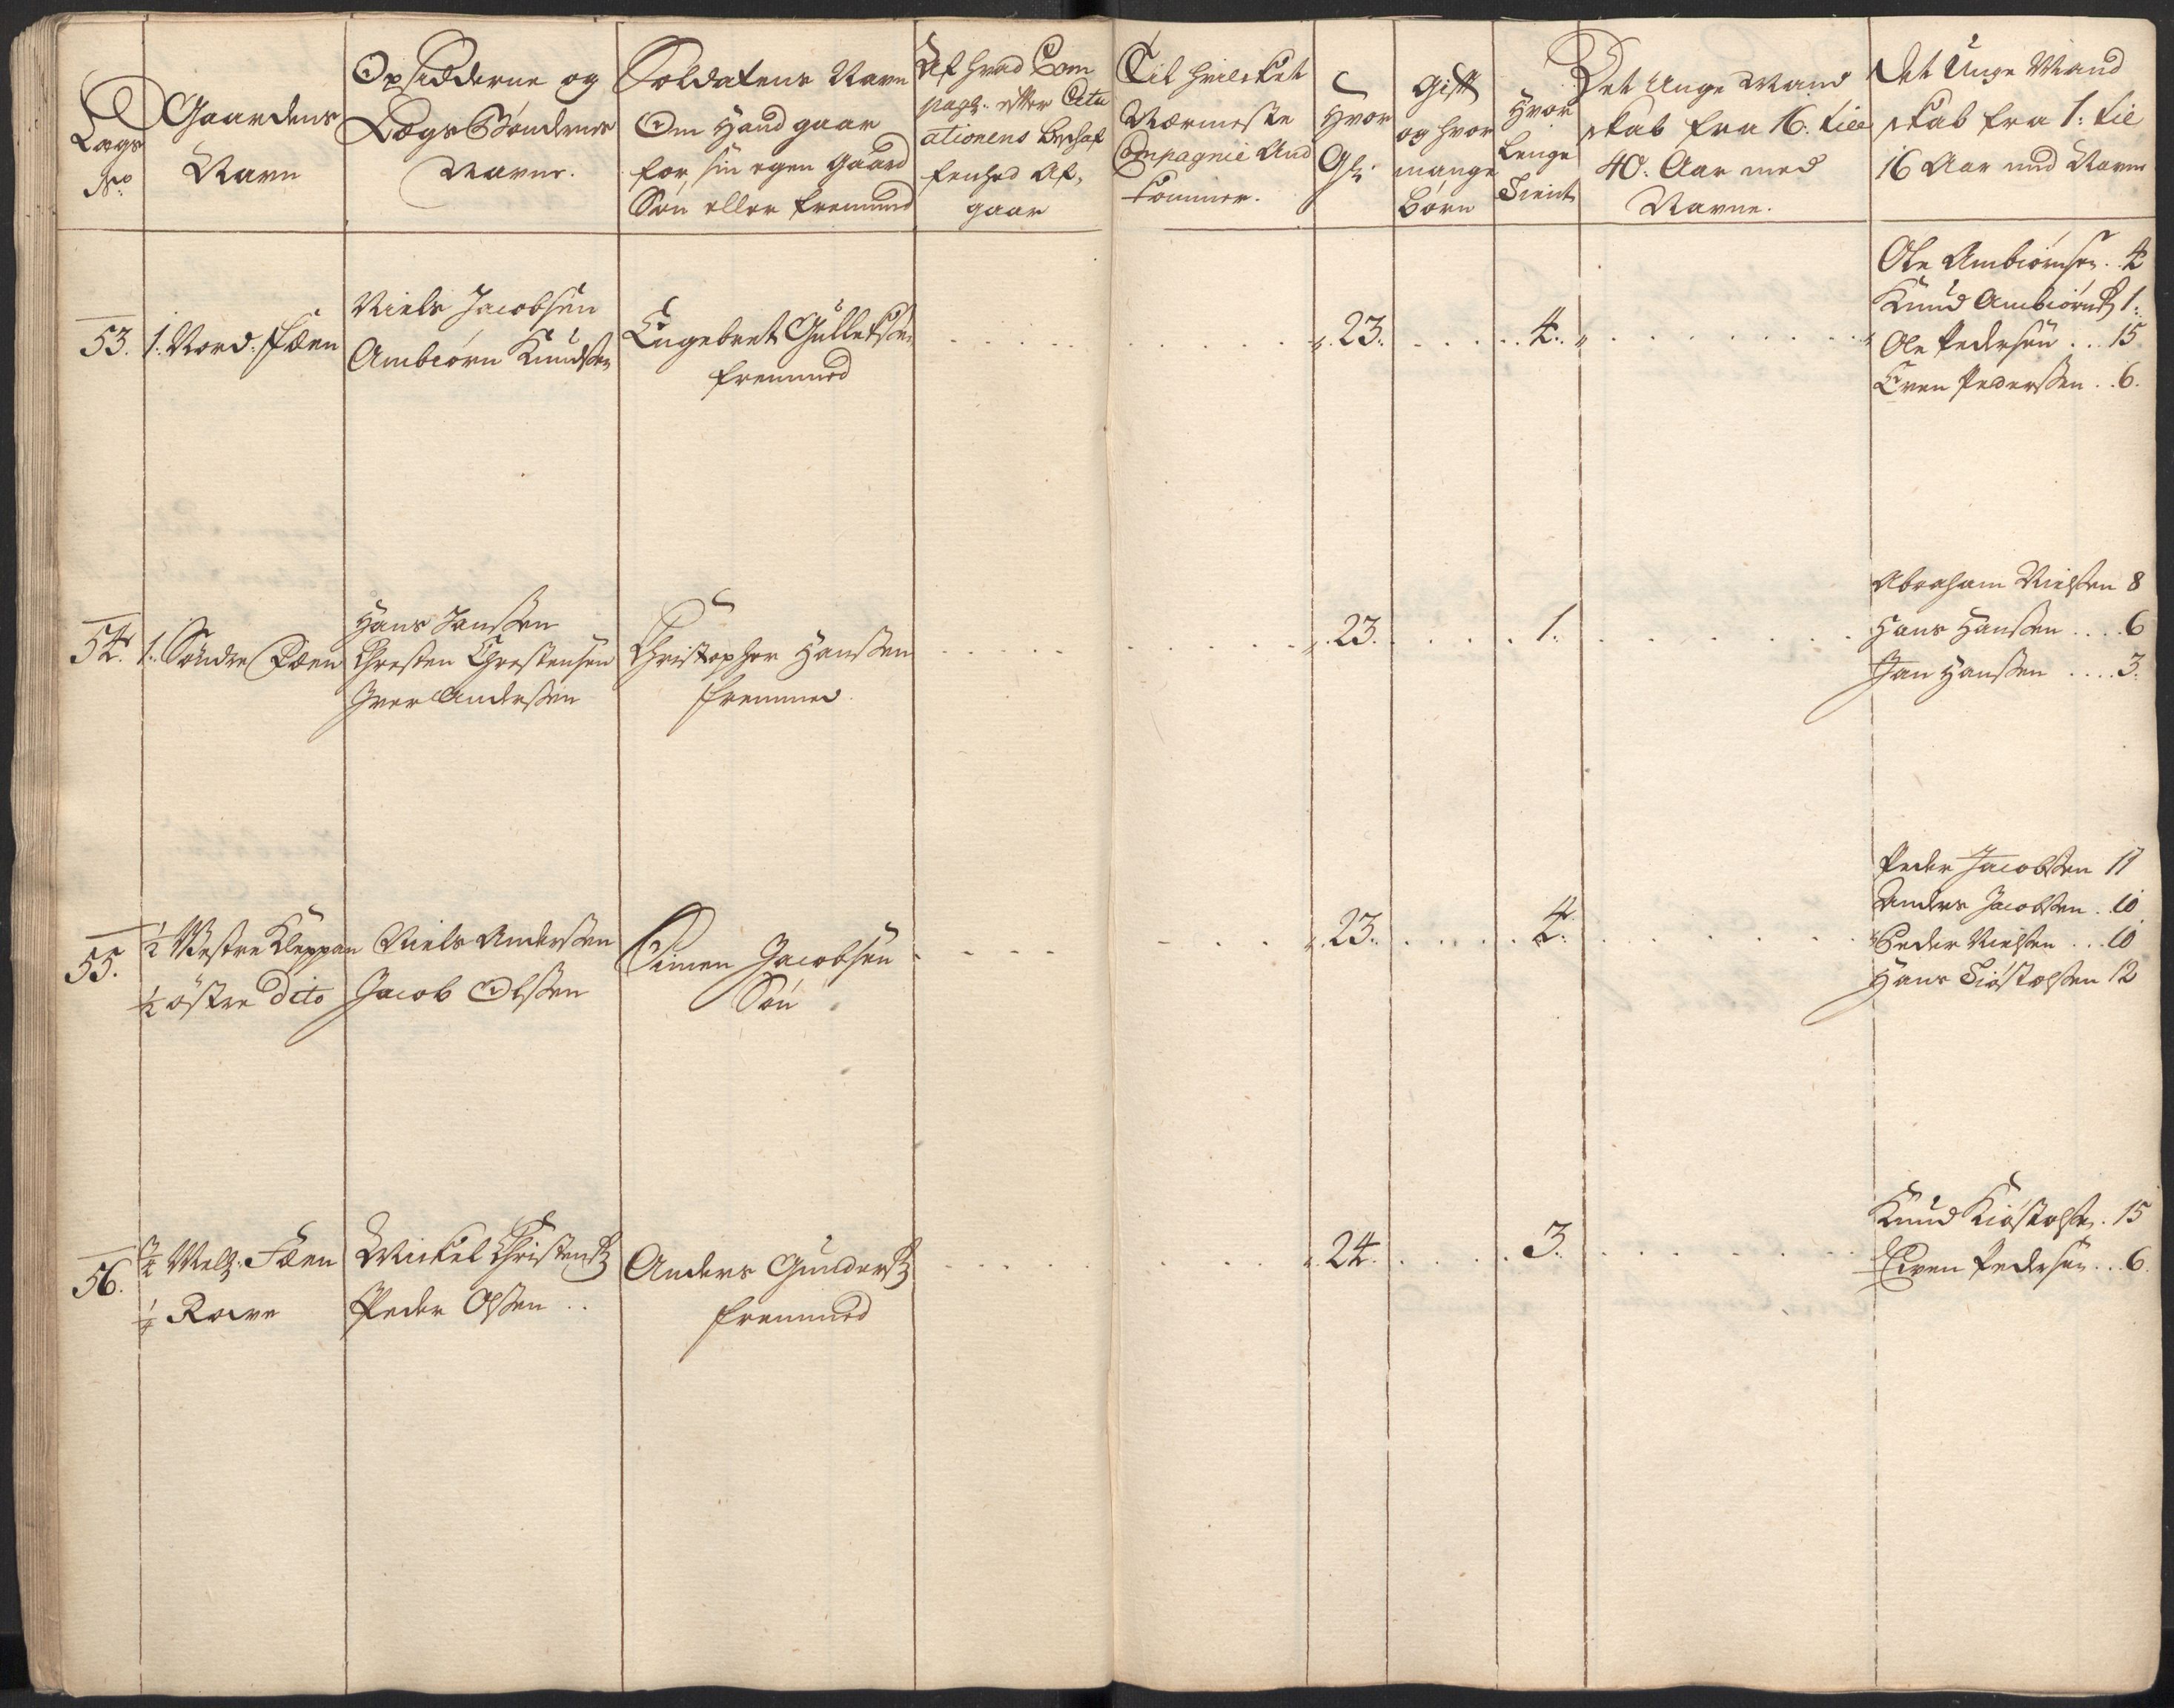 Lægs
No:
Gaardens
Navn
Opsidderne og
Lægs Bøndernes
Navne.
Soldatens Navn
Om Hand gaar
for sin egen Gaard
Søn eller fremmed
Af hvad Com
pagn: efter Situ
ationens beschaf
fenhed Af,
gaar
Til hvilcket
Nærmeste
Compagnie And
kommer.
Hvor
Gl:
Gift
og hvor
mange
børn
Hvor
lenge
Tient
Det Unge Mand
skab fra 16: till
40: Aar med
Navne.
Det Unge Mand
skab fra 1: til
16 Aar med Navne
53. 1. Nord: Fæen
Niels Jacobsen
Ambiørn Knudsen
Engebret Gulleksen
fremmed
23. 4.
Ole Ambiørnsen . 4
Knud Ambiørns: 1:
Ole Pedersen . . 15
Even Pederssen . . 6.
54. 1. Søndre Fæen
Hans Janssen
Chresten Chrestensen
Iver Anderssen
Christopher Hanssen
fremmed
23. 1.
Abraham Nielssen 8
Hans Hanssen . . . . 6
Jan Hanssen . . . . 3.
55. ½ Westre Kleppan
½ östre Dito
Niels Anderssen
Jacob Olssen
Simen Jacobsen
Søn
23. 4.
Peder Jacobssen 11
Anders Jacobssen . 10.
Peder Nielssen . . . 10
Hans Kiøstolssen 12
56. ¾ Mell: Fæen
¼ Rowe
Mickel Christens:
Peder Olssen . .
Anders Gunders:
fremmed
24. 3.
Knud Kiøstolsen . 15
Even Pedersen . . . 6.